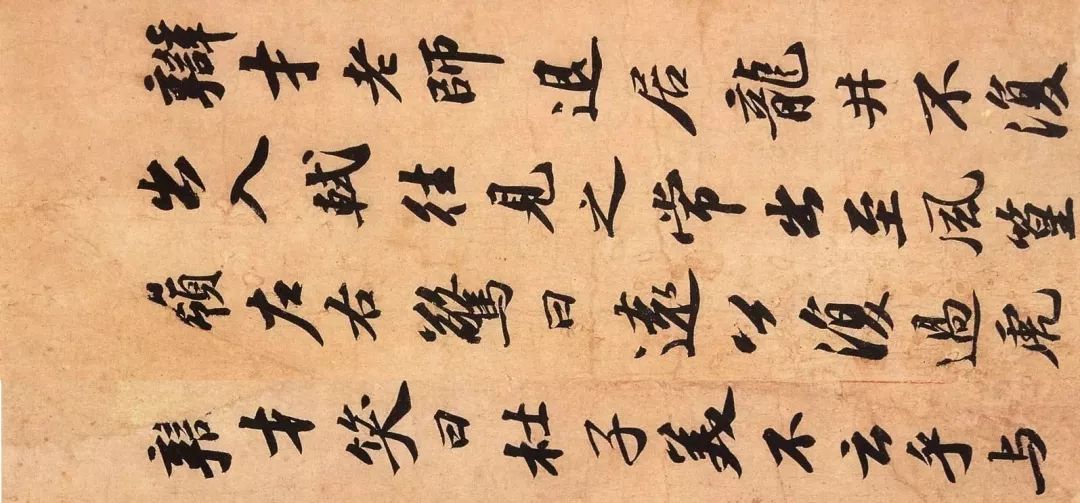 辯才老師退居龍井不復
出入軾往見之常出至風篁
嶺左右驚曰遠公復過虎
辯才笑曰杜子美不云乎与